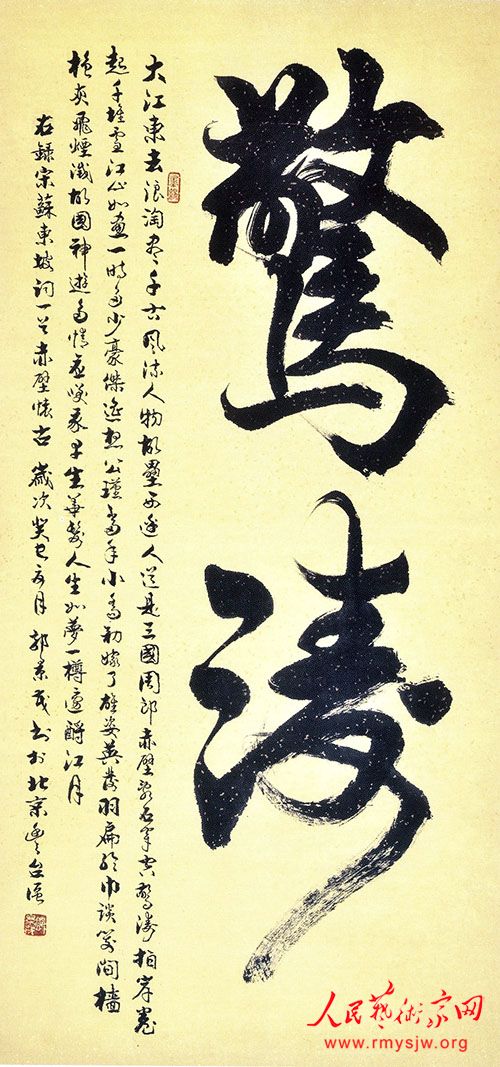 驚濤
大江東去浪淘盡千古風流人物故壘西邊人道是三國周郎赤壁亂石穿空驚濤拍岸卷
起千堆雪江山如畫一時多少豪傑遙想公瑾當年小喬初嫁了雄姿英發羽扇綸巾談笑間檣
櫓灰飛煙滅故國神遊多情應笑我早生華髮人生如夢一樽還酹江月
右錄宋蘇東坡詞一首赤壁懷古 歲次癸巳 月 郭 書於北京豐台區
人民藝術家网
www.rmysjw.org